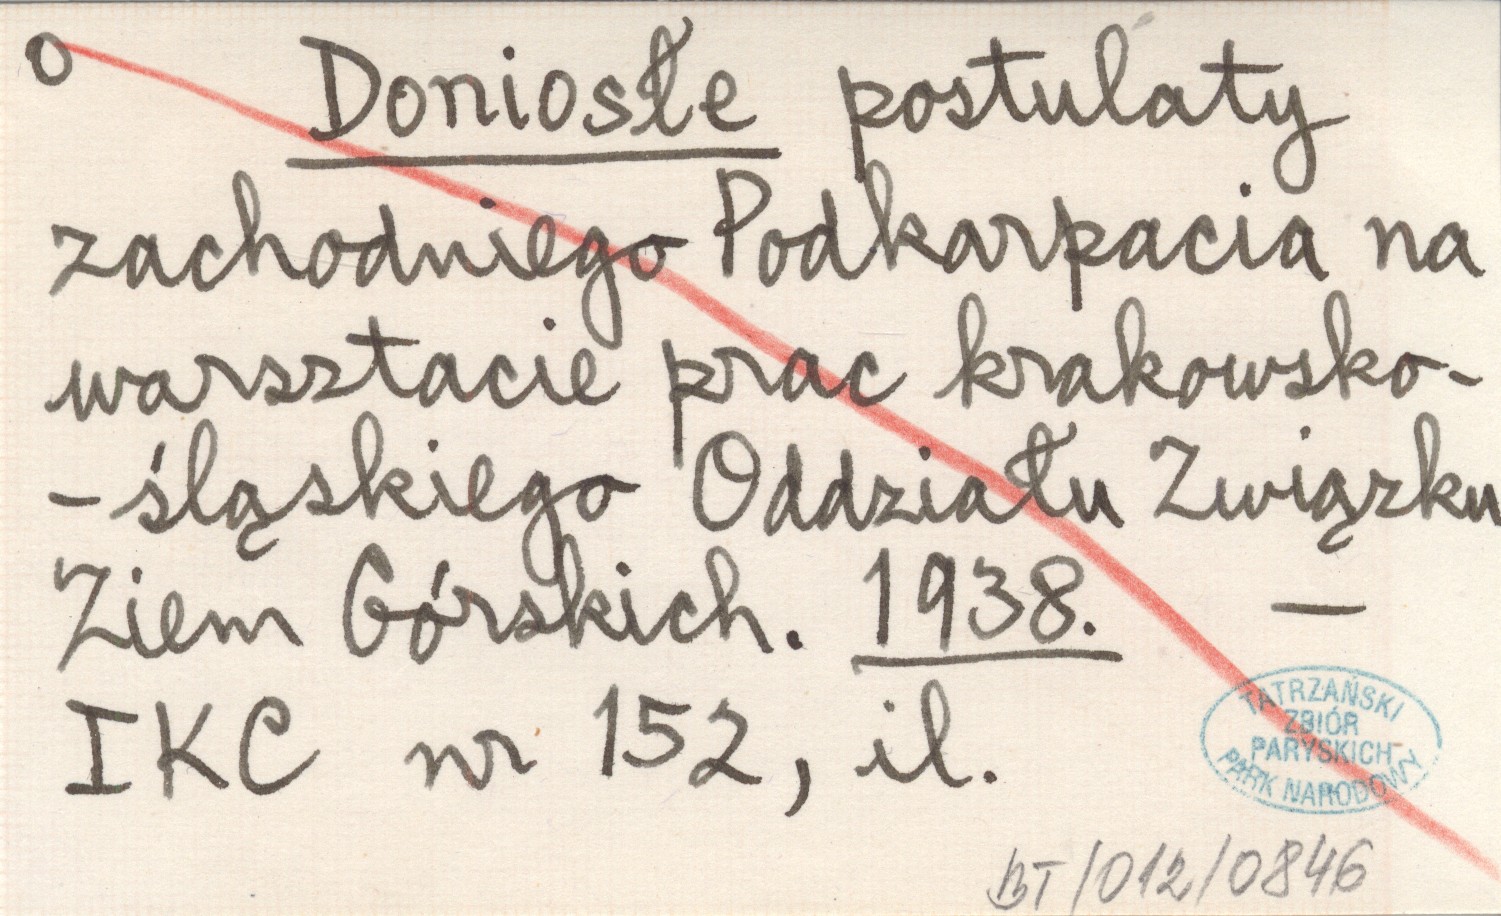 o Doniosłe postulaty
zachodniego Podkarpacia na
warsztacie prac krakowsko-
-śląskiego Oddziału Związku
Ziem Górskich. 1938. —
IKC nr 152, il.
TATRZAŃSKI
ZBIÓR
PARYSKICH
PARK NARODOWY
BT/012/0846